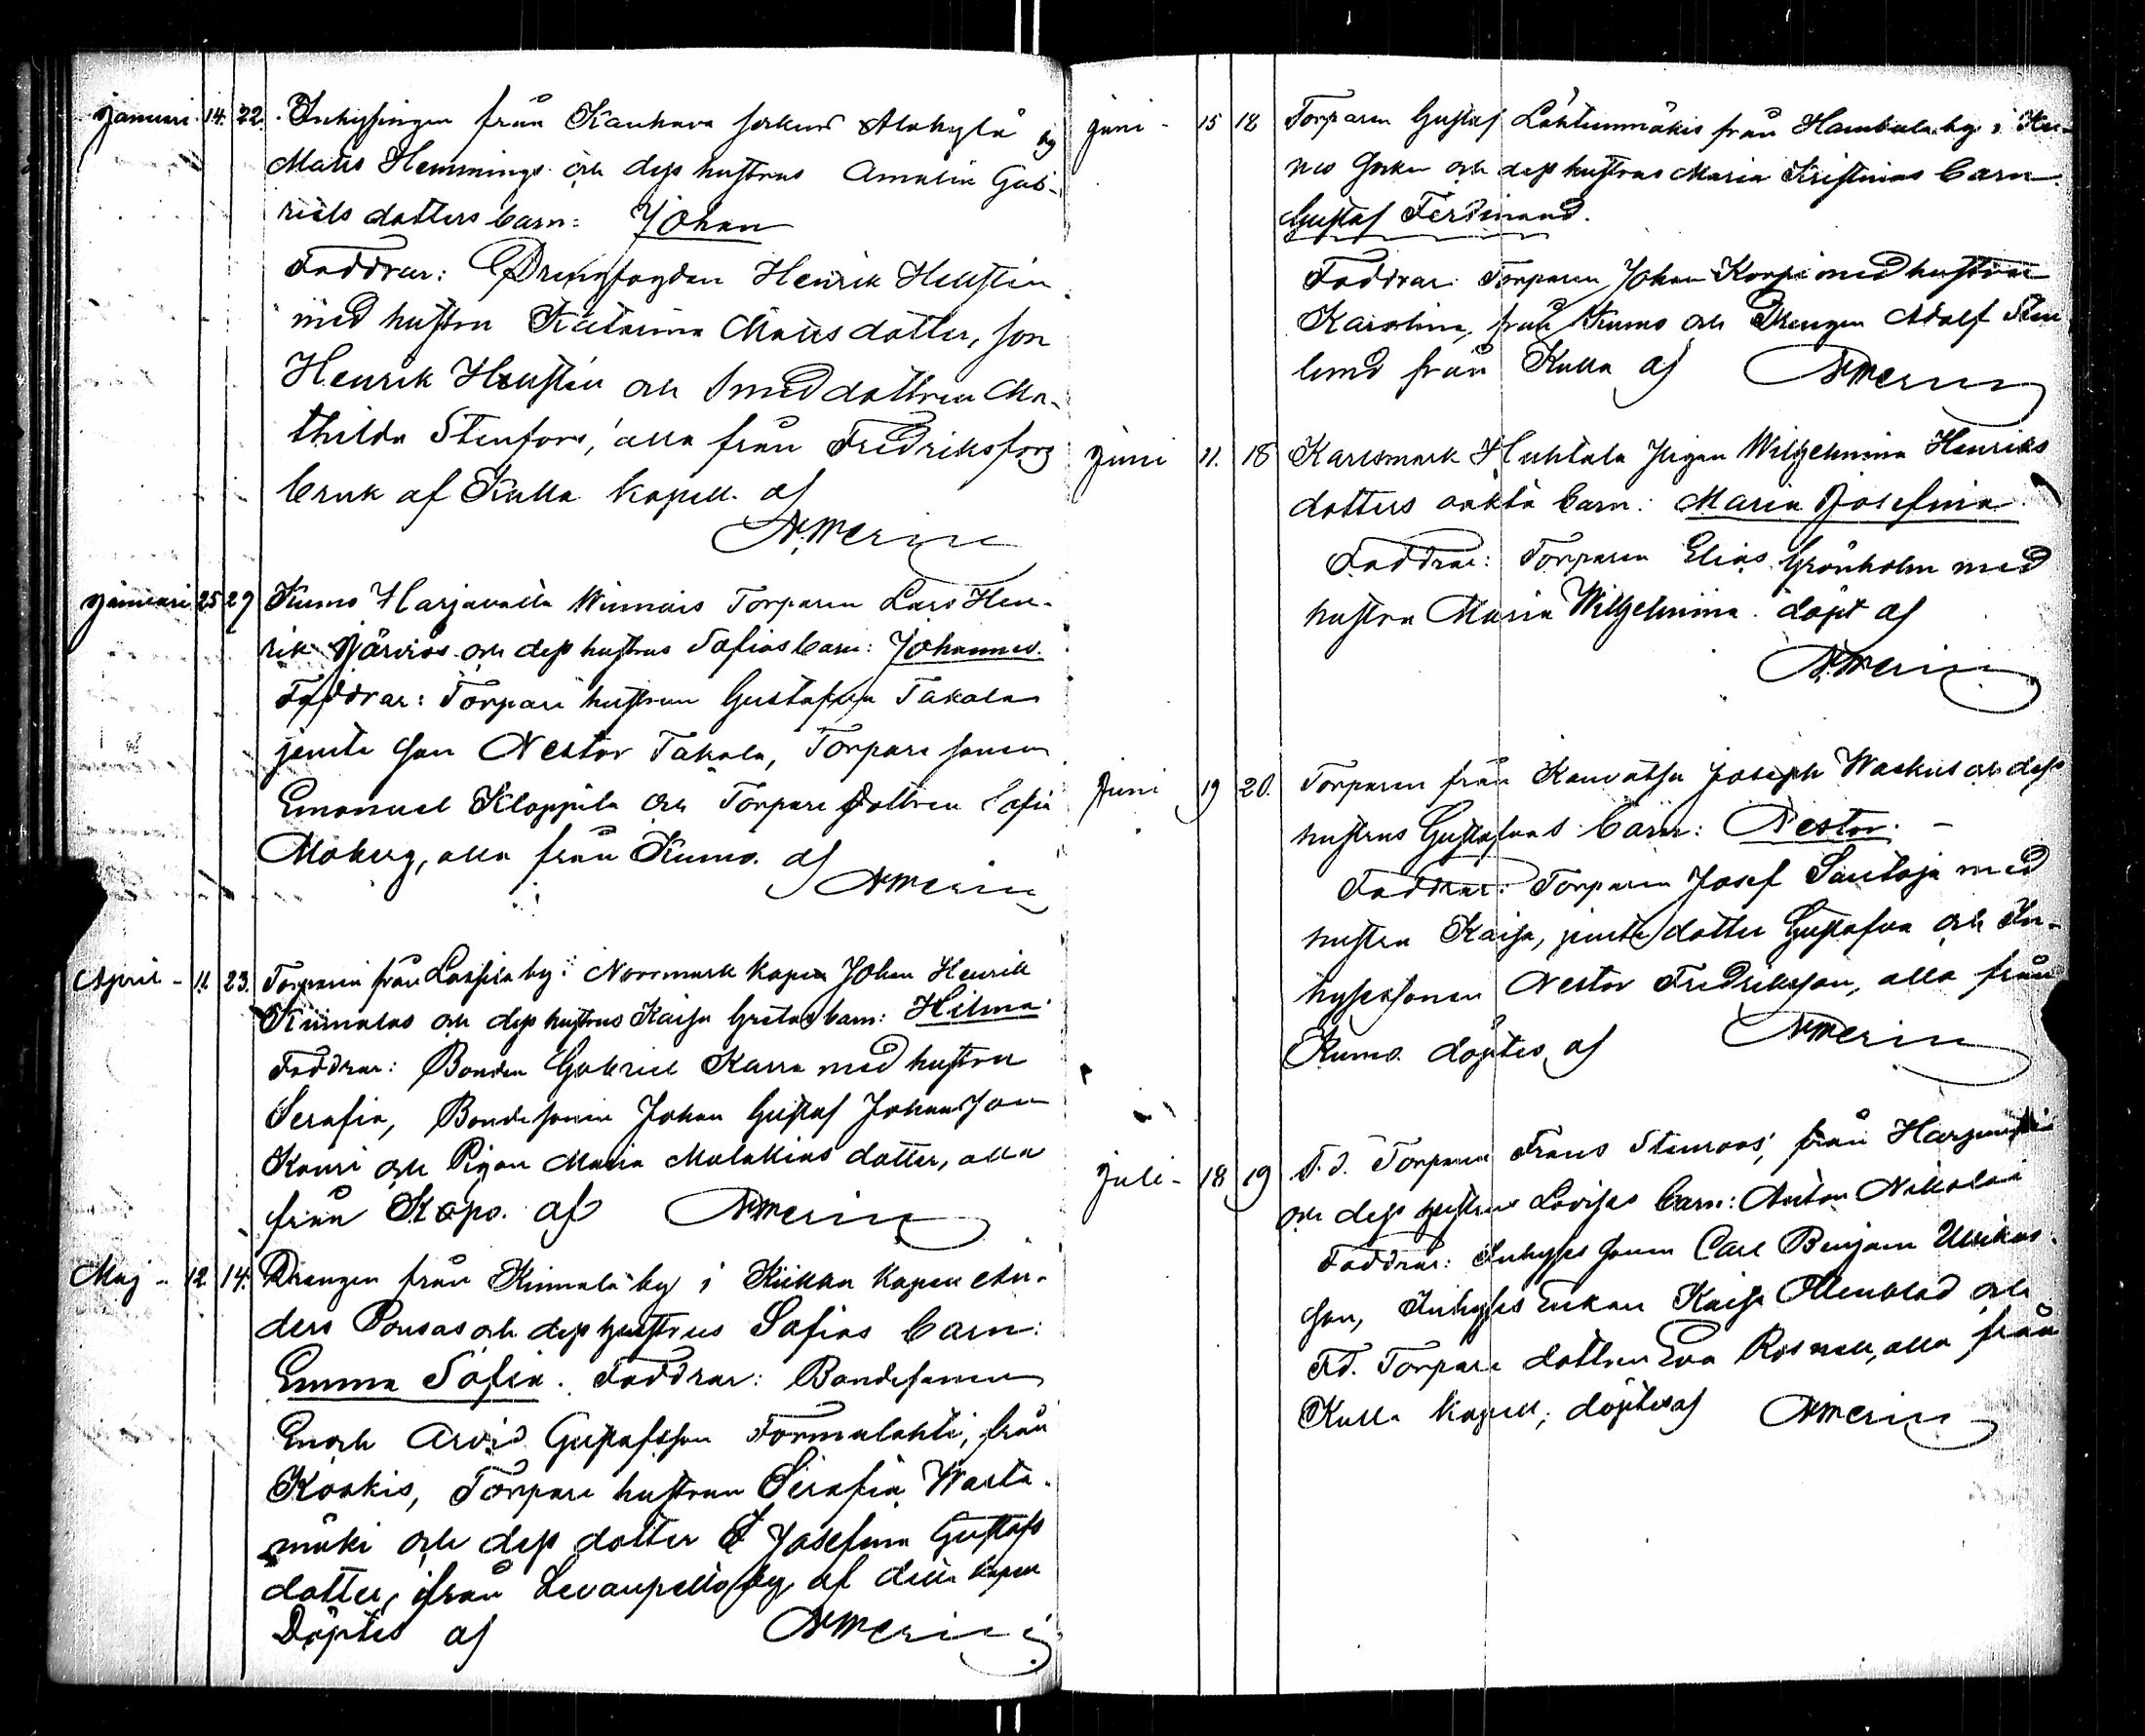 Januari 14. 22. Inhysingen från Kauhava socken Alakylä by
Matts Hemmings och dess hustrus Amalia Gab-
riels dotters barn: Johan
Faddrar: Drengfogden Henrik Hellstén
med hustru Katarina Mattsdotter, son
Henrik Hellstén och Smeddottren Ma-
thilda Stenfors, alla från Fredriksfors
bruk af Kulla kapell. af
Amerin
Januari 25 27 Kumo Harjavalta Torparen Lars Hen-
rik Järvis och dess hustrus Sofias barn: Johannes.
Faddrar: Torpare hustrun Gustafva Takala
jemte son Nestor Takala, Torpare sonen
Emanuel Kloppila och Torpare dottren Sofia
Moberg, alla från Kumo. af
Amerin
April - 11. 23. Torparen från Lassila by i Norrmark kapell Johan Henrik
och dess hustrus Kaisa Gretas barn: Hilma
Faddrar: Bonden Gabriel Karra med hustru
Serafia, Bondesonen Johan Gustaf Johansson
Kauri och Pigan Maria Malakias dotter, alla
från af Amerin
Maj - 12. 14. Drengen från Kiimala by i Kiikka kapell An-
ders Ponsas och dess hustrus Sofias barn:
Emma Sofia. Faddrar: Bondesonen
Enoch Arvid Gustafsson Tormalahti, från
Koskis, Torpare hustrun Serafia Wasta-
mäki och dess dotter Josefina Gustafs
dotter, från Levanpelto by af detta kapell
Döptes af Amerin
Juni - 15 18 Torparen Gustaf Lähteenmäkis från by i Ku-
mo socken och dess hustrus Maria Kristinas barn
Gustaf Ferdinand.
Faddrar: Torparen Johan Korpi med hustru
Karolina, från Kumo och Drengen Adolf Sten
lund från Kulla af Amerin
Juni 11. 18 Karlsmark Huhtala Pigan Wilhelmina Henriks
dotters oäkta barn: Maria Josefina.
Faddrar: Torparen Elias Grönholm med
hustru Maria Wilhelmina. döpt af
Amerin
Juni 19 20. Torparen från Kauvatsa Joseph Waskus och dess
hustrus Gustafvas barn: Nestor. -
Faddrar: Torparen Josef Santaja med
hustru Kaisa, jemte dotter Gustafva och In-
hysessonen Nestor Fredriksson, alla från
Kumo. döptes af Amerin
Juli - 18 19 F.d. Torparen Frans Stenroos, från
och dess hustrus Lovisas barn: Anton Nikolai
Faddrar: Inhyses sonen Carl Benjam Ulrikas-
son, Inhyses Enkan Kaisa Ollenblad och
F.d. Torpare dottren Eva Rosnell, alla från
Kulla kapell, döptes af Amerin